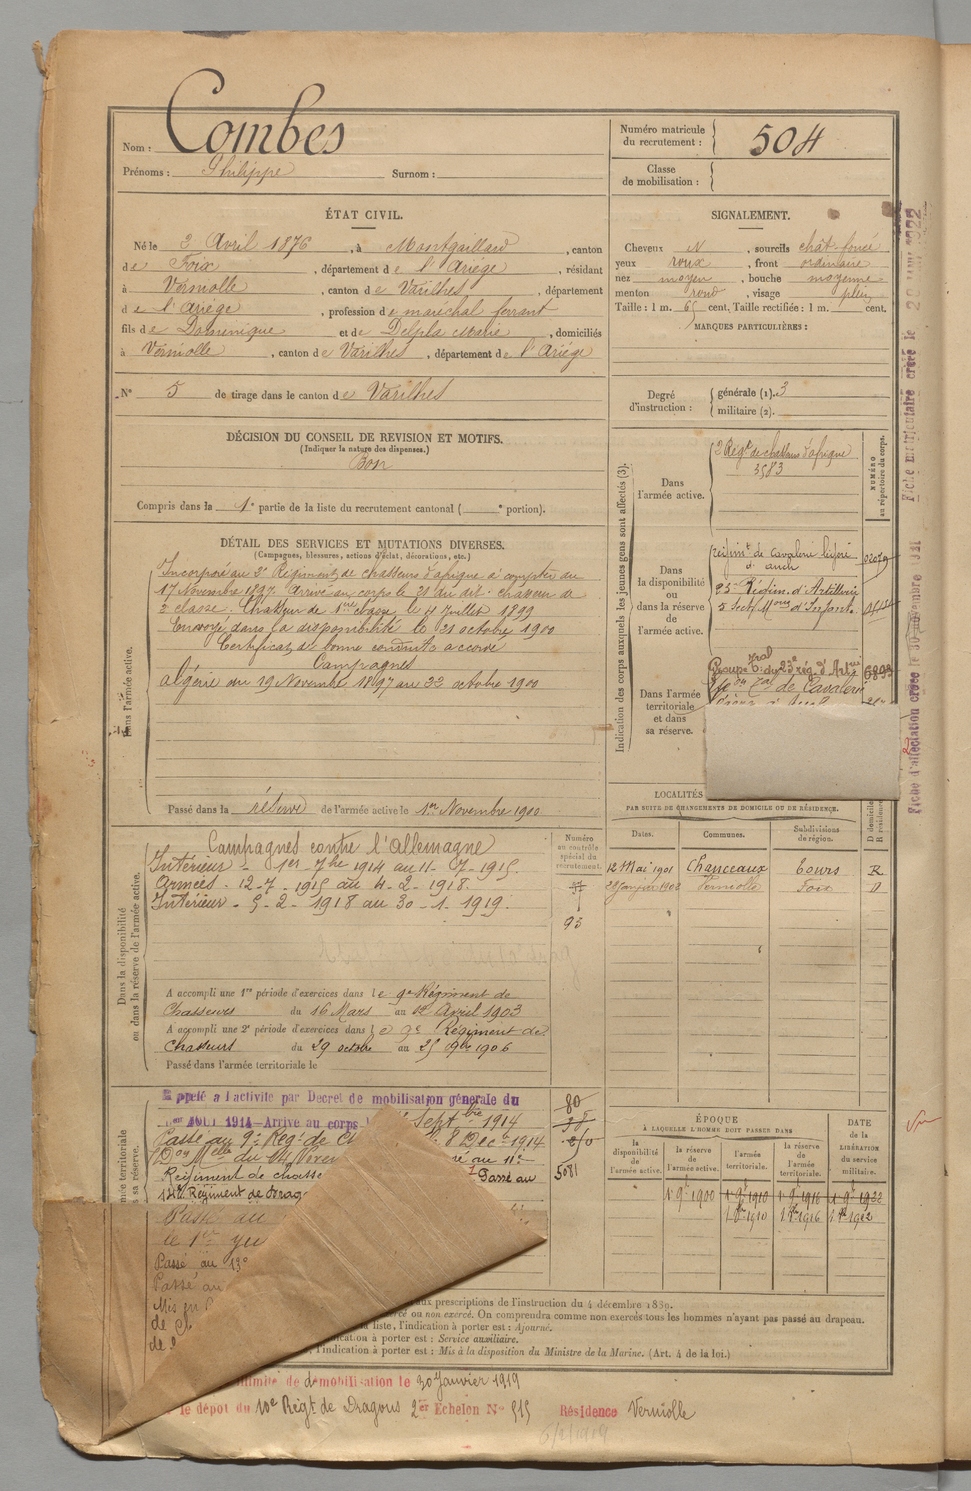 Nom : Combes
Prénoms : Philippe Surnom :
Numéro matricule du recrutement : 504
Classe de mobilisation :
ÉTAT CIVIL.
Né le 2 Avril 1876, à Montgaillard, canton
de Foix, département de l'Ariége, résidant
à Verniolle, canton de Varilhes, département
de l'Ariége, profession de maréchal ferrant
fils de Dominique et de Delpla Marie, domiciliés
à Verniolle, canton de Varilhes, département de l'Ariége
SIGNALEMENT.
Cheveux N, sourcils chât-foncé
yeux roux, front ordinaire
nez moyen, bouche moyenne
menton rond, visage plein
Taille : 1 m. 65 cent. Taille rectifiée : 1 m. cent.
MARQUES PARTICULIÈRES :
N° 5 de tirage dans le canton de Varilhes
Degré d'instruction : générale (1). 3
militaire (2).
DÉCISION DU CONSEIL DE REVISION ET MOTIFS.
(Indiquer la nature des dispenses.)
Bon
Compris dans la 1e partie de la liste du recrutement cantonal ( e portion).
Indication des corps auxquels les jeunes gens sont affectés (3).
NUMÉRO au répertoire du corps.
Dans l'armée active.
2 Régt de chasseurs d'afrique
3583
Dans la disponibilité ou dans la réserve de l'armée active.
régimt de cavalerie légère
d'auch
23me Régim. d'Artillerie
5 Sect. Mons d'Infant.
Dans l'armée territoriale et dans sa réserve.
Groupe tral du 23e rég. d'Artie
de Cavalerie
DÉTAIL DES SERVICES ET MUTATIONS DIVERSES.
(Campagnes, blessures, actions d'éclat, décorations, etc.)
Dans l'armée active.
Incorporé au 2e Régiment de chasseurs d'afrique à compter du
17 Novembre 1897. Arrivé au corps le 21 du dit. chasseur de
2 classe. Chasseur de 1ere classe le 4 Juillet 1899
Envoyé dans la disponibilité le 31 octobre 1900
Certificat de bonne conduite accordé
Campagnes
Algérie du 19 Novembre 1897 au 22 octobre 1900
Passé dans la réserve de l'armée active le 1er Novembre 1900
LOCALITÉS
PAR SUITE DE CHANGEMENTS DE DOMICILE OU DE RÉSIDENCE.
Dates. Communes. Subdivisions de région. D domicile R résidence
12 Mai 1901 Chanceaux Tours R
29 janvier 1902 Verniolle Foix D
Dans la disponibilité ou dans la réserve de l'armée active.
Numéro au contrôle spécial du recrutement.
95
Campagnes contre l'allemagne
Intérieur - 1er - 7bre 1914 au 11 - 7 - 1915.
Armées - 12-7 - 1915 au 4 - 2 - 1918.
Intérieur - 5 - 2 - 1918 au 30 - 1. 1919.
A accompli une 1re période d'exercices dans le 9e Régiment de
Chasseurs du 16 Mars au 12 Avril 1903
A accompli une 2e période d'exercices dans le 9e Régiment de
Chasseurs du 29 octobre au 25 9bre 1906
Passé dans l'armée territoriale le
Appelé a l'activite par Decret de mobilisation générale du
1er AOUT 1914 — Arrive au corps Septbre 1914
Passé au 9e Régt de Ch 8 Dec. 1914
au 11e
Régiment de chasse Passé au
14e Régiment de drag
Passé au
le 1er
Passé au 13e
Passé au
Mis en
de
80
5081
ÉPOQUE
À LAQUELLE L'HOMME DOIT PASSER DANS
la disponibilité de l'armée active.
la réserve de l'armée active.
l'armée territoriale.
la réserve de l'armée territoriale.
DATE de la LIBÉRATION du service militaire.
1 9bre 1900 1 9bre 1910 1 9bre 1916 1 9bre 1922
1 8bre 1910 1 8bre 1916 1 8bre 1922
aux prescriptions de l'instruction du 4 décembre 1889.
ou non exercé. On comprendra comme non exercés tous les hommes n'ayant pas passé au drapeau.
la liste, l'indication à porter est : Ajourné.
indication à porter est : Service auxiliaire.
l'indication à porter est : Mis à la disposition du Ministre de la Marine. (Art. 4 de la loi.)
de démobilisation le 30 Janvier 1919
le dépot du 10e Régt de Dragons 2er Echelon N° 515 Résidence Verniolle
5/2/1919
Fiche matriculaire créée le
Fiche d'affectation créée le 30 novembre 1921